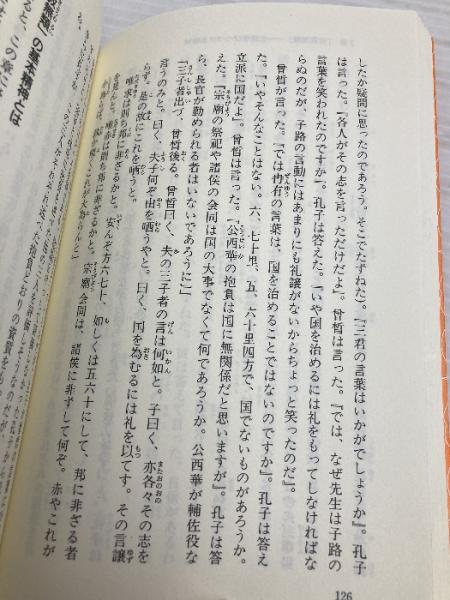 したか疑問に思ったのであろう。そこでたずねた』。『三君の言葉はいかがでしょうか』。孔子
は言った。『各人がその志を言っただけだよ』。曾晳は言った。『では、なぜ先生は子路の
言葉を笑われたのですか』。孔子は答えた。『いや国を治めるには礼をもってしなければな
らぬのだが、子路の言動にはあまりにも礼譲がないからちょっと笑ったのだ』。
曾晳が言った。『では冉有の言葉は、国を治めることではないのですか』。孔子は答え
た。『いやそんなことはない。六、七十里、五、六十里四方で、国でないものがあろうか。
立派に国だよ』。曾晳は言った。『公西華の抱負は国に無関係だと思いますが』。孔子は答え
た。『宗廟の祭祀や諸侯の会同は国の大事でなくて何であろうか。公西華が輔佐役な
ら、長官が勤められる者はいないであろうに』」
「三子者出づ。曾晳後る。曾晳曰く、夫の三子者の言は何如と。子曰く、亦各々その志を
言うのみと。曰く、夫子何ぞ由を哂うやと。曰く、国を為むるには礼を以てす。その言譲
らず。是の故にこれを哂うと。
唯求は則ち邦に非ざるかと。安んぞ方六七十、如しくは五六十にして、邦に非ざる者
を見んと。唯赤は則ち邦に非ざるかと。宗廟会同は、諸侯に非ずして何ぞ。赤やこれが
の基本精神とは
126